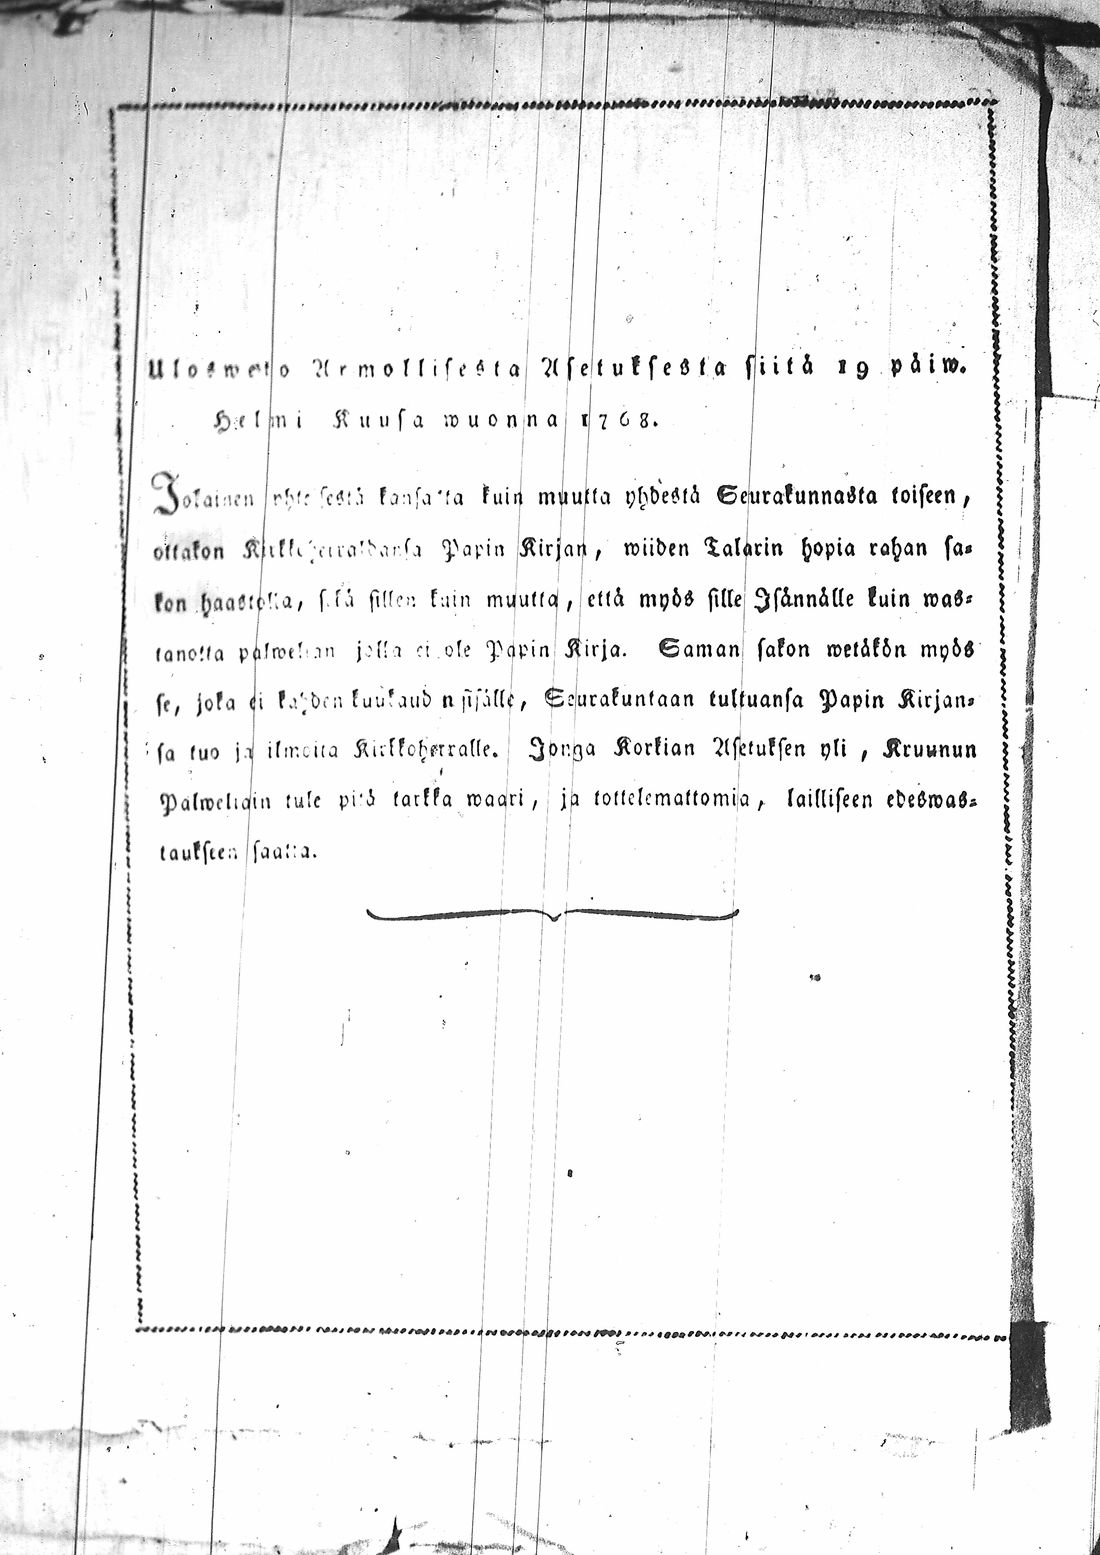 Ulosweto Armollisesta Asetuksesta siitä 19 päiw.
Helmi Kuusa wuonna 1768.
Jokainen yhteisestä kansasta kuin muutta yhdestä Seurakunnasta toiseen,
ottakon Kirkkoherraldansa Papin Kirjan, wiiden Talarin hopia rahan sa-
kon haastolla, sekä sillen kuin muutta, että myös sille Isännälle kuin was-
tanotta palwelian jolla ei ole Papin Kirja. Saman sakon wetäkön myös
se, joka ei kahden kuukauden sisälle, Seurakuntaan tultuansa Papin Kirjan-
sa tuo ja ilmoita Kirkkoherralle. Jonga Korkian Asetuksen yli, Kruunun
Palweliain tule pitä tarkka waari, ja tottelemattomia, lailliseen edeswas-
taukseen saatta.